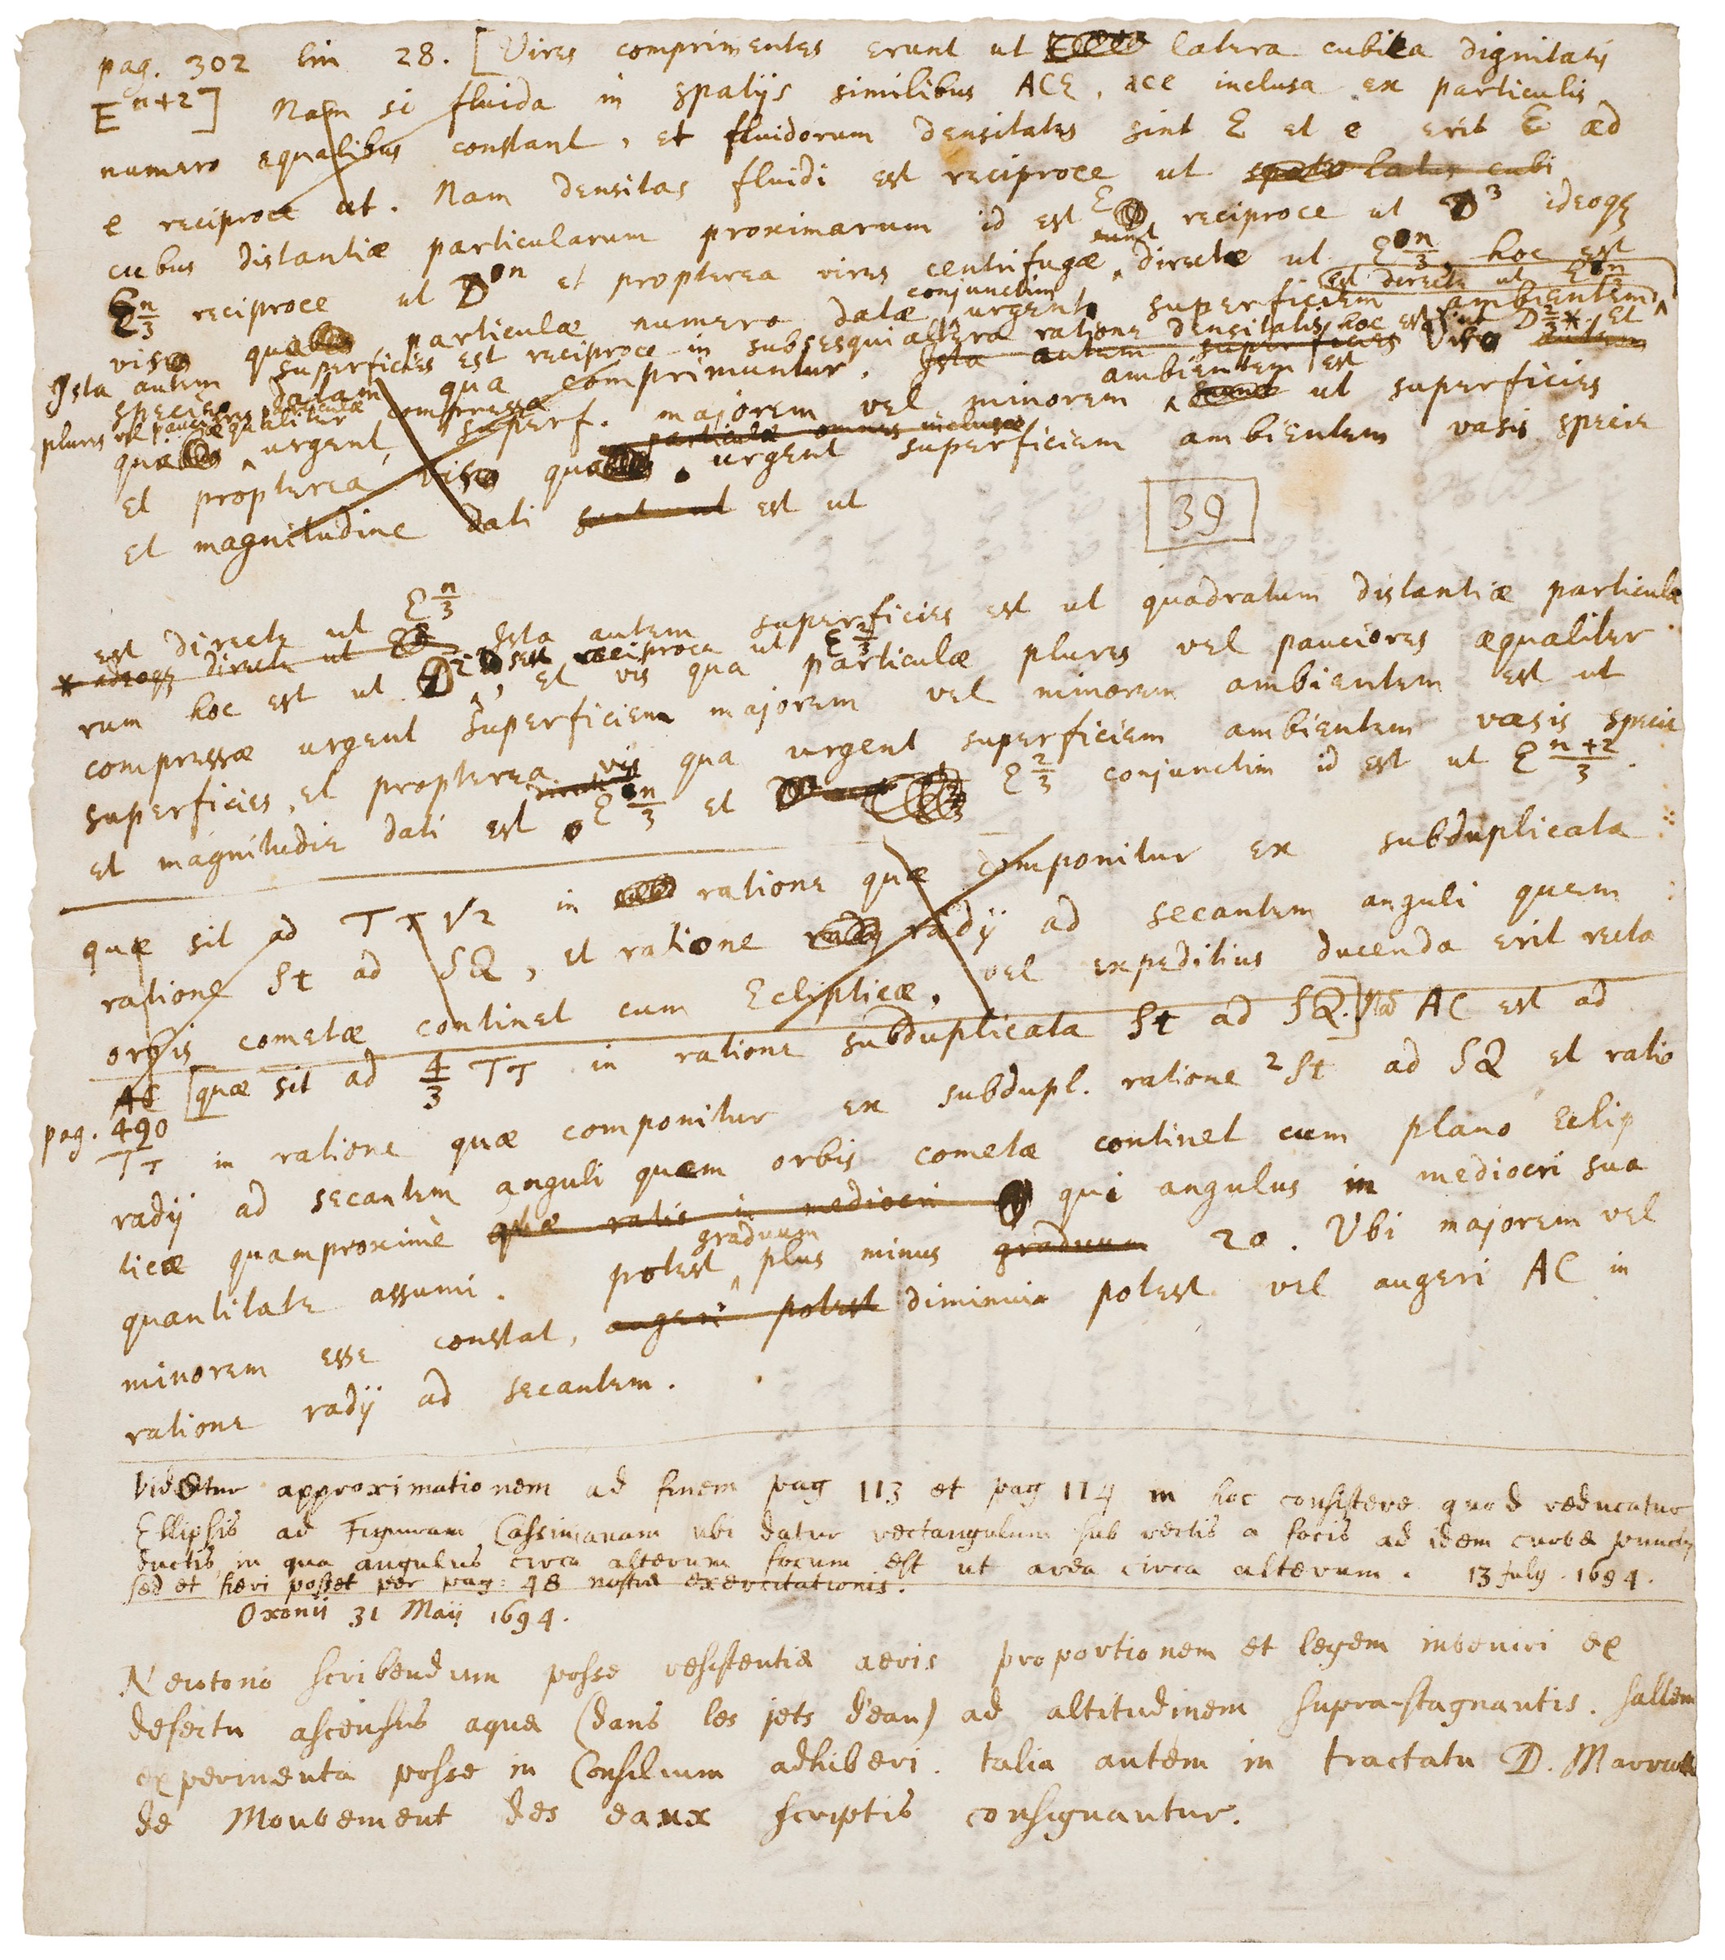 pag. 302 lin 28. [Vires comprimentes erunt ut latera cubica dignitatis
E^{n+2}] Nam si fluida in spatijs similibus ACE, ace inclusa ex particulis
numero æqualibus constant, et fluidorum densitates sint E et e erit E ad
e reciproce ut. Nam densitas fluidi est reciproce ut latus cubi
cubus distantiæ particularum proximarum id est E reciproce ut D^3 ideoqꝫ
E^{n/3} reciproce ut D^n et propterea vires centrifugæ sunt directe ut E^{n/3}, hoc est
est directe ut E^{n/3}
vis qua particulæ numero datæ conjunctim urgent superficiem ambientem
Ista autem superficies est reciproce in subsesquialtera ratione densitatis hoc est ut D^{2/3} * Et
specie datam qua comprimuntur. Ista autem superficies Vis autem
plures vel pauciores particulæ æqualiter compressæ
qua urgent superf. majorem vel minorem ambientem est ut superficies
particulæ omnes inclusæ
Et propterea vis qua urgent superficiem ambientem vasis specie
et magnitudine dati sunt ut est ut
39
est directe ut E^{n/3}
* adeoqꝫ directe ut Ista autem superficies est ut quadratum distantiæ particula
rum hoc est ut D^2 seu reciproce ut E^{2/3}, Et vis qua particulæ plures vel pauciores æqualiter
compressæ urgent superficiem majorem vel minorem ambientem est ut
superficies, et propterea vis qua urgent superficiem ambientem vasis specie
et magnitudie dati est E^{n/3} et E^{2/3} conjunctim id est ut E^{n+2/3}.
quæ sit ad Tτ√2 in ratione quæ componitur ex subduplicata
ratione St ad SQ, et ratione radij ad secantem anguli quem
orbis cometæ continet cum Eclipticæ, vel expeditius ducenda erit recta
AC [quæ sit ad 4/3 Tτ in ratione subduplicata St ad SQ.] Nā AC est ad
pag. 490
Tτ in ratione quæ componitur ex subdupl. ratione 2St ad SQ et ratio
radij ad secantem anguli quem orbis cometæ continet cum plano Eclip
ticæ quamproximè quæ ratio in mediocri qui angulus in mediocri sua
quantitate assumi potest graduum plus minus graduum 20. Ubi majorem vel
minorem esse constat, augeri potest diminui potest vel augeri AC in
ratione radij ad secantem.
Videtur approximationem ad finem pag 113 et pag 114 in hoc consistere quod reducatur
Ellipsis ad Figuram Cassinianam ubi datur rectangulum sub rectis a focis ad idem curvæ punctū
ductis, in qua angulus circa alterum focum est ut area circa alterum. 13 July. 1694.
sed et fieri posset per pag: 48 nostræ exercitationis.
Oxonij 31 Maij 1694.
Neutono scribendum posse resistentiæ aeris proportionem et legem inveniri ex
defectu ascensus aquæ (dans les jets d'eau) ad altitudinem supra-stagnantis. saltem
experimenta posse in Consilium adhiberi. talia autem in tractatu D. Marriott
de Mouvement des eaux scriptis consignantur.